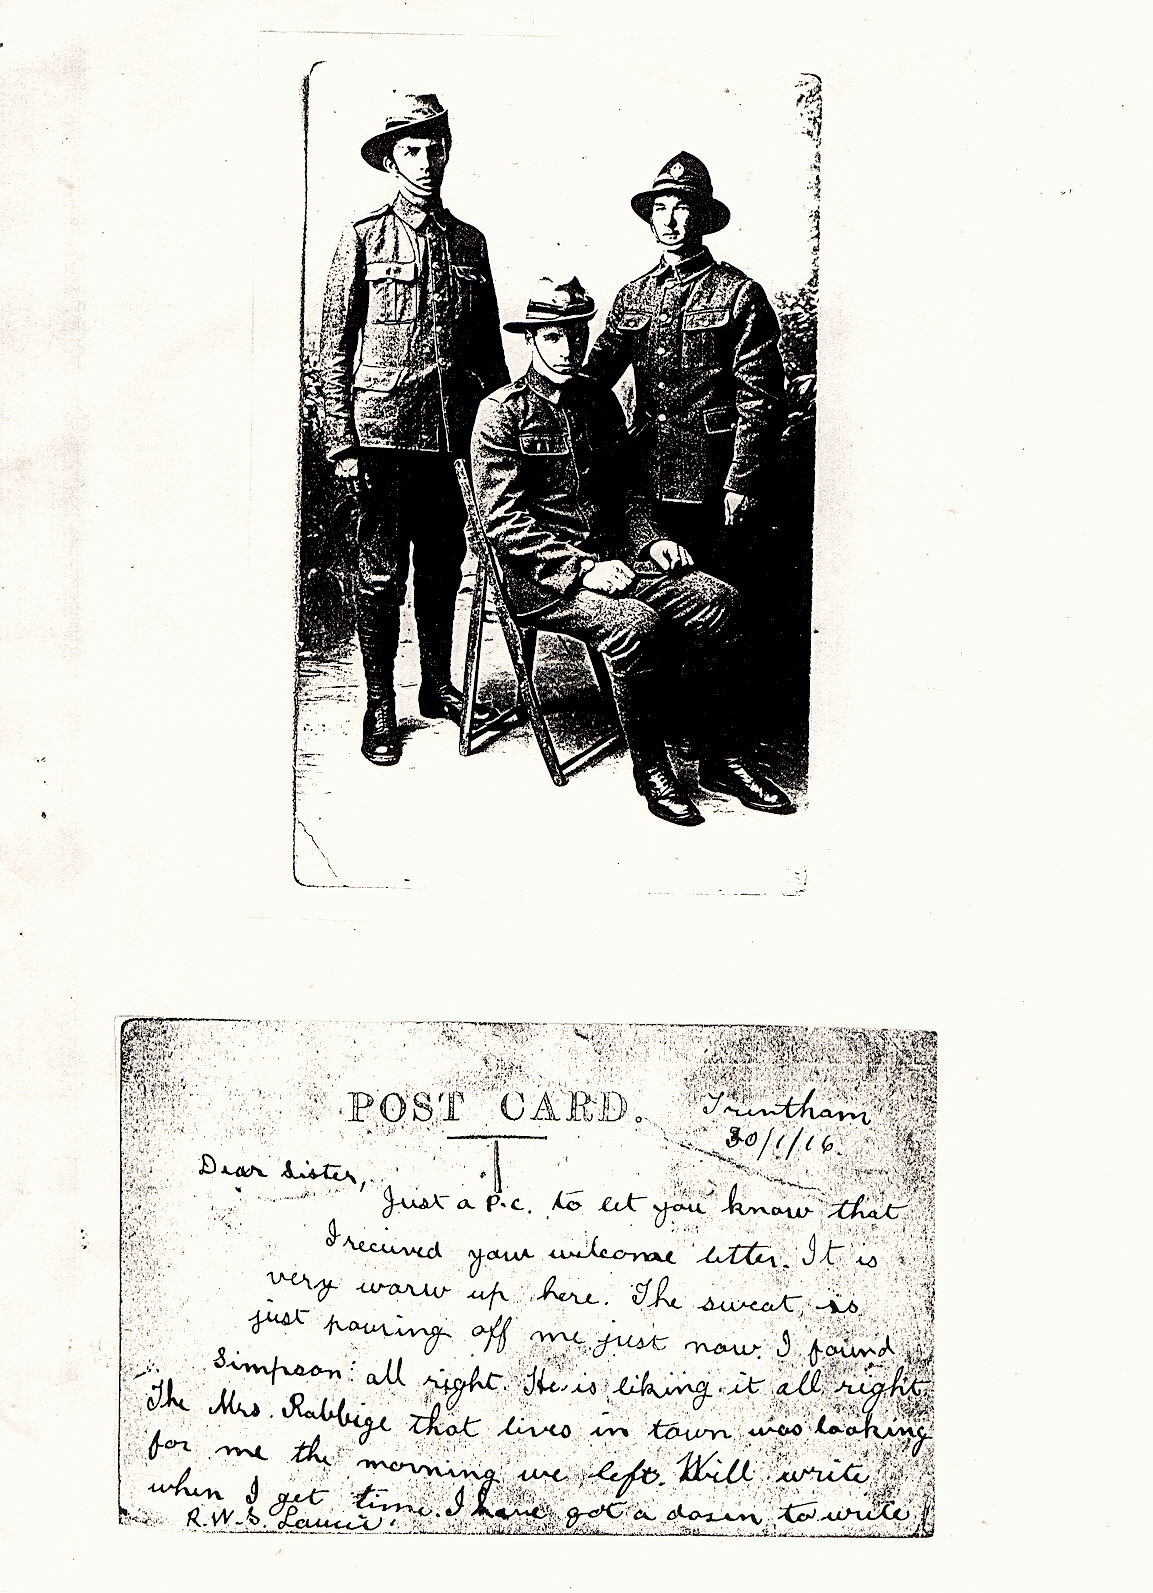 POST CARD.
Trentham
30/1/16.
Dear Sister,
Just a P.C. to let you know that
I received your welcome letter. It is
very warm up here. The sweat is
just pouring off me just now. I found
Simpson all right. He is liking it all right.
The Mrs. Rabbige that lives in town was looking
for me the morning we left. Will write
when I get time. I have got a dozen to write
R.W.S. Lawrie.